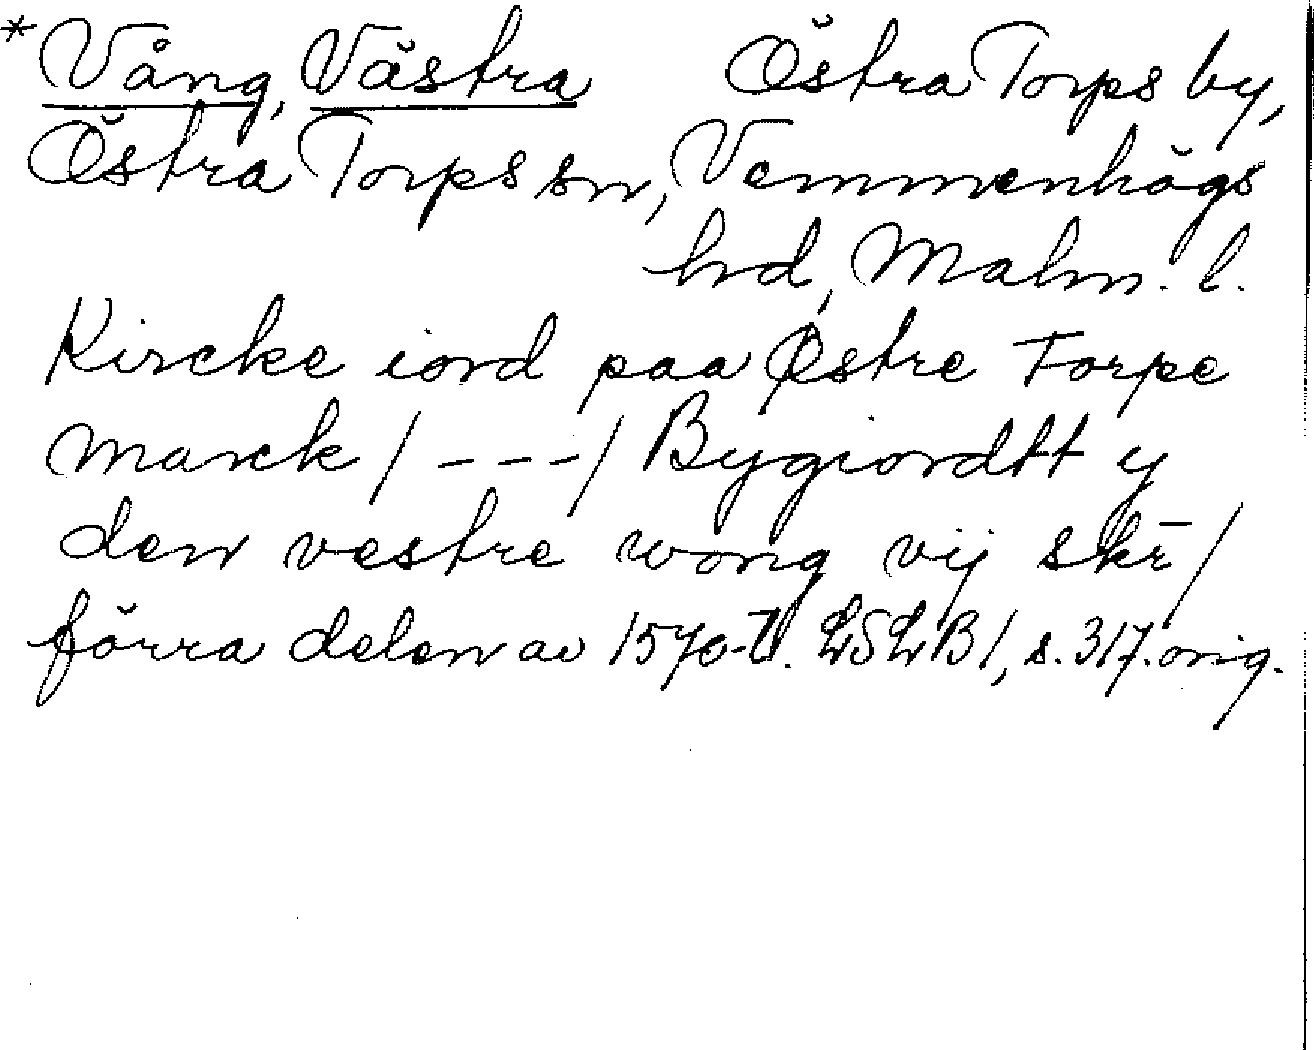 *Vång, Västra Östra Torps by,
Östra Torps sn, Vemmenhögs
hd, Malm. l.
Kircke iord paa Østre Torpe
marck /---/ Bygiordtt y
den vestre wong vij skr̄/
förra delen av 1570-t. LSLB1, s. 317. orig.